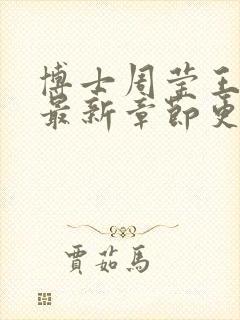 博士周莹王
最新章節更
賈茹馬